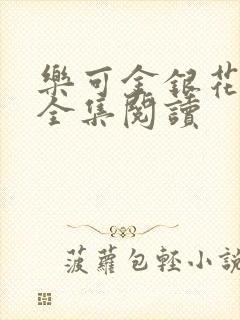 樂可金銀花
全集閱讀
菠蘿包輕小說